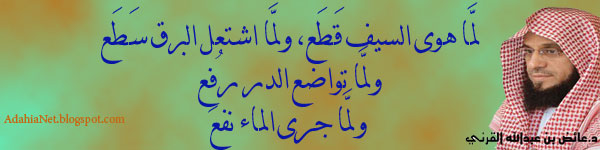 لمَّا هوى السيف قَطَع، ولمَّا اشتعل البرق سَطَع
ولمَّا تواضع الدر رُفِع
ولمَّا جرى الماء نفعَ
AdahiaNet.blogspot.com
د.عائض بن عبدالله القرني